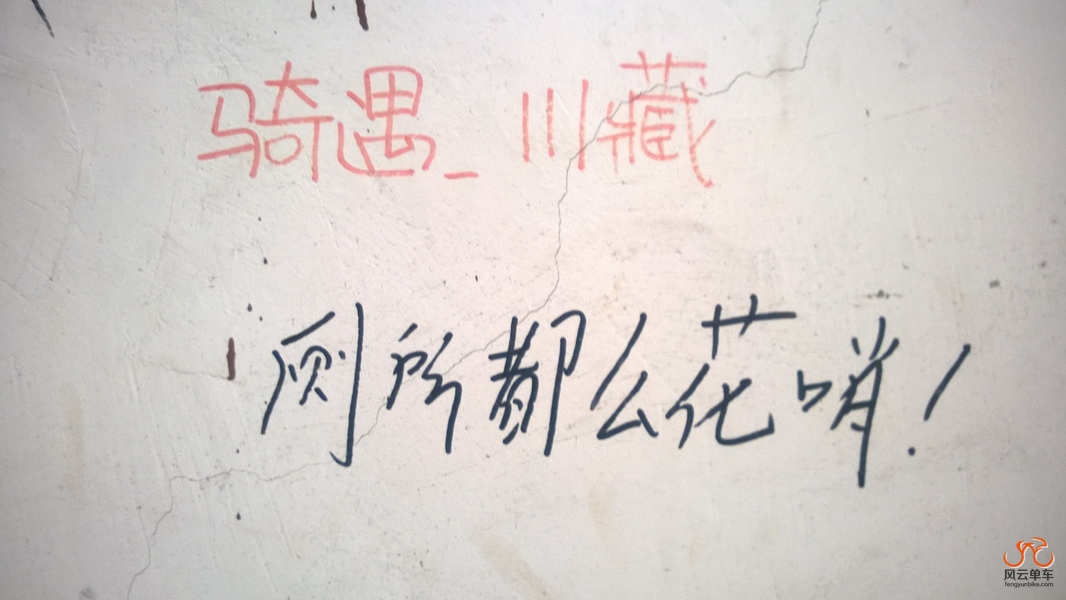 骑遇_川藏
厕所都么花哨!
风云单车
fengyunbike.com